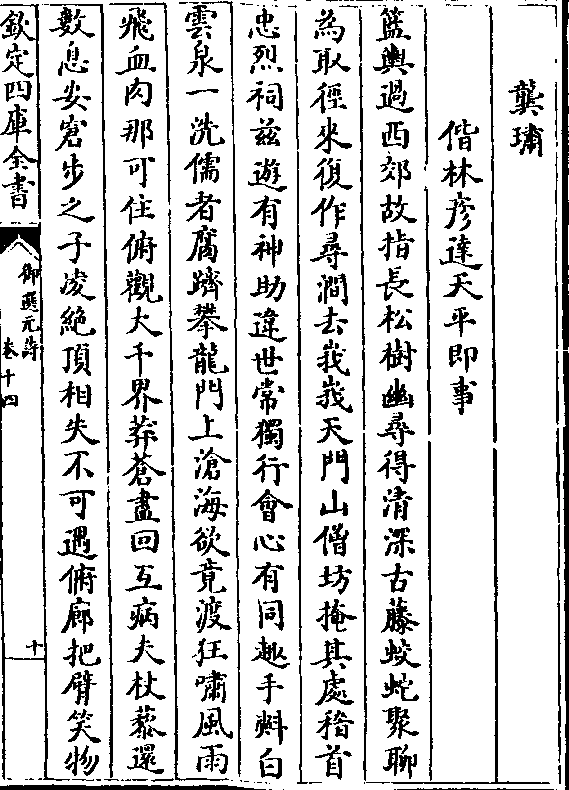 龔璛
偕林彦逹天平即事
籃輿過西郊故指長松樹幽尋得清深古藤蛟蛇聚聊
為取徑来復作尋澗去峩峩天門山僧坊掩其處稽首
忠烈祠兹遊有神助違世常獨行會心有同趣手㪺白
雲泉一洗儒者腐躋攀龍門上滄海欲竟渡狂嘯風雨
飛血肉那可住俯觀大千界莽蒼盡回互病夫杖藜還
數息安寛步之子凌絶頂相失不可遇俯廊把臂笑物
欽定四庫全書
御選元詩
卷十四
十